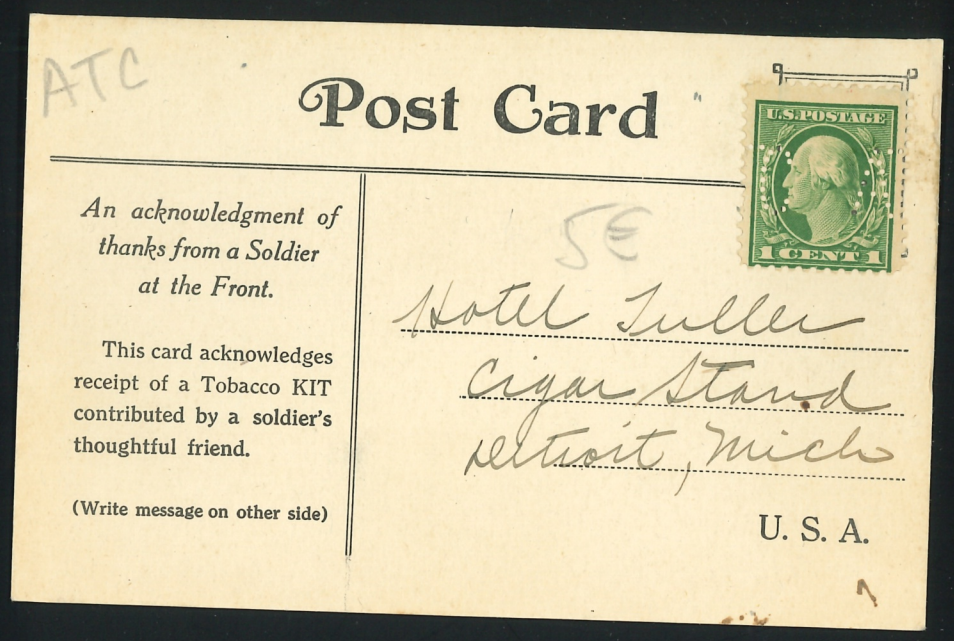 ATC
Post Card
U.S. POSTAGE
1 CENT 1
An acknowledgment of
thanks from a Soldier
at the Front.
This card acknowledges
receipt of a Tobacco KIT
contributed by a soldier's
thoughtful friend.
(Write message on other side)
5E
Hotel Tuller
Cigar Stand
Detroit, Mich
U. S. A.